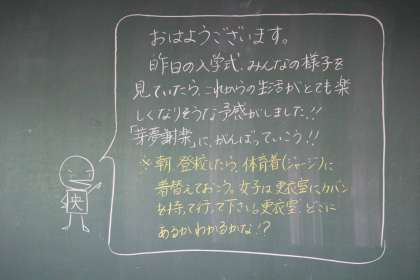 おはようございます。
昨日の入学式、みんなの様子を
見ていたら、これからの生活がとても楽
しくなりそうな予感がしました!!
「芽夢謝楽」に、がんばっていこう!!
※朝、登校したら、体育着(ジャージ)に
着替えておこう。女子は更衣室にカバン
を持って行って下さい。更衣室、どこに
あるかわかるかな!?
央